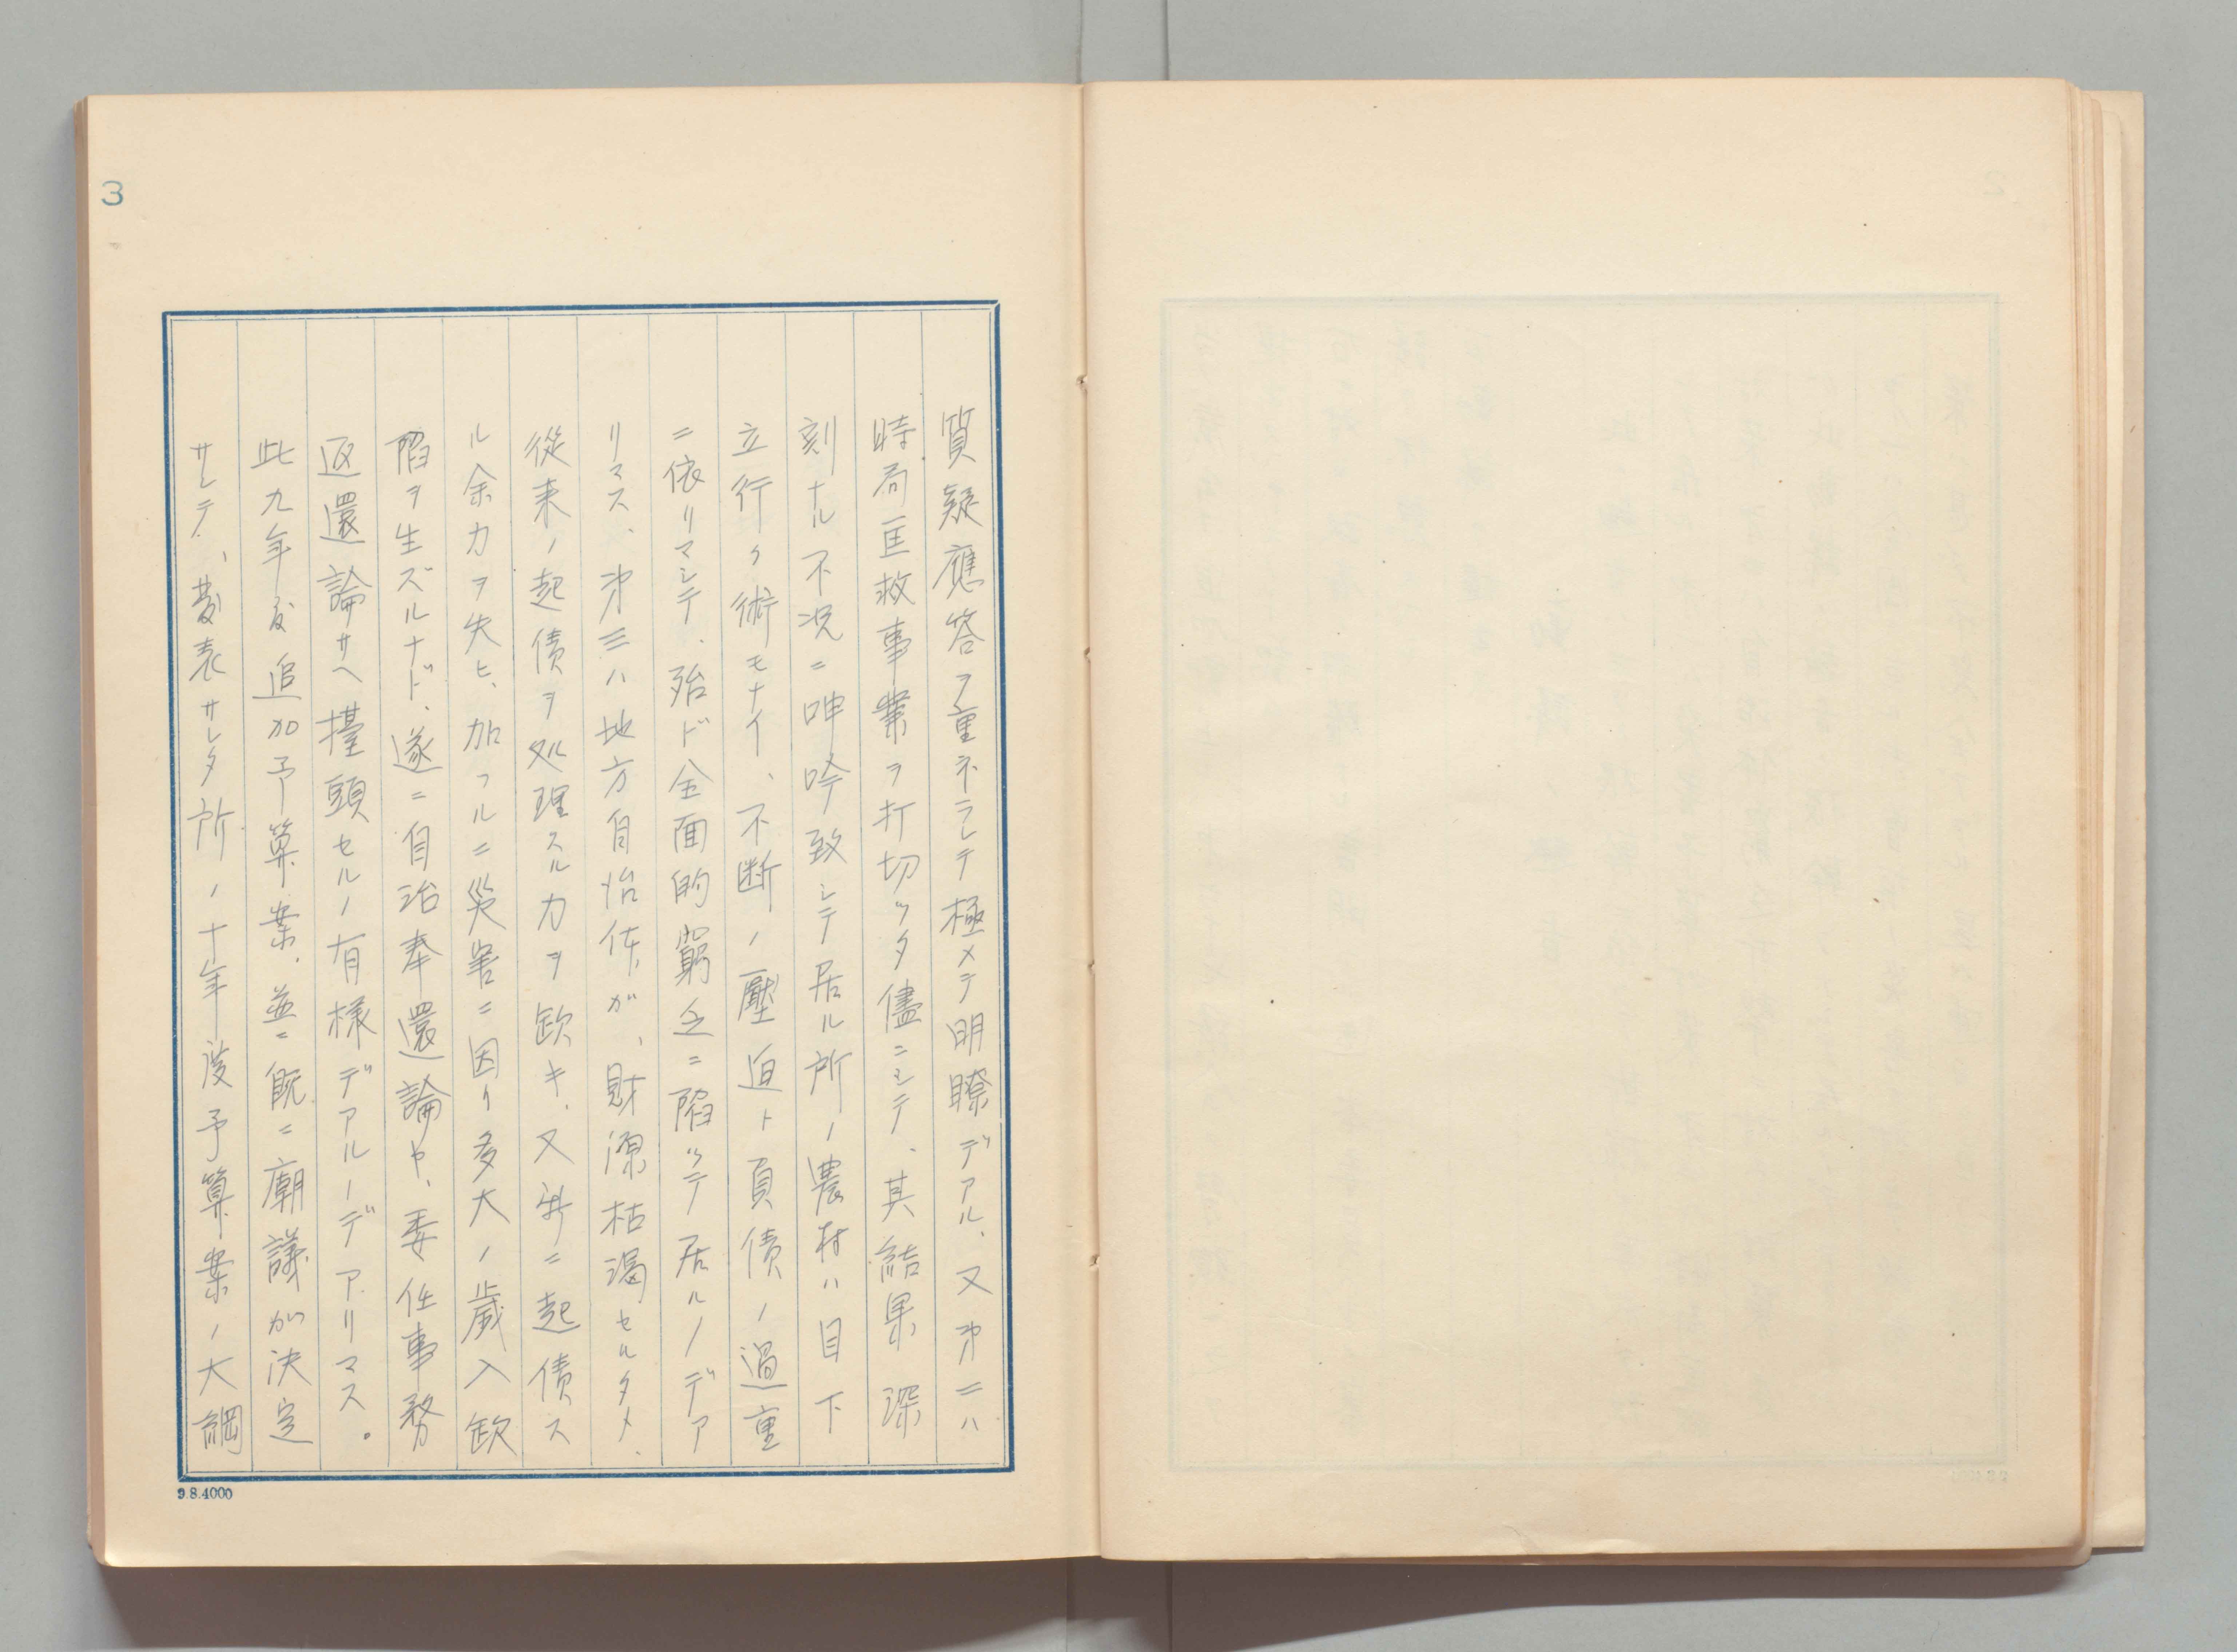 3
質疑應答ヲ重ネラレテ極メテ明瞭デアル、又第二ハ
時局匡救事業ヲ打切ッタ儘ニシテ、其結果深
刻ナル不況ニ呻吟致シテ居ル所ノ農村ハ目下
立行ク術モナイ、不断ノ壓迫ト負債ノ過重
ニ依リマシテ、殆ド全面的窮乏ニ陥ッテ居ルノデア
リマス、第三ハ地方自治体ガ、財源枯渇セルタメ、
從来ノ起債ヲ処理スル力ヲ欽キ、又新ニ起債ス
ル余力ヲ失ヒ、加フルニ災害ニ因リ多大ノ歳入欽
陥ヲ生ズルナド、遂ニ自治奉還論ヤ、委任事務
返還論サヘ擡頭セルノ有様デアルノデアリマス。
此九年度追加予算案、並ニ既ニ廟議ガ決定
サレテ、發表サレタ所ノ十年度予算案ノ大綱
9.8.4000